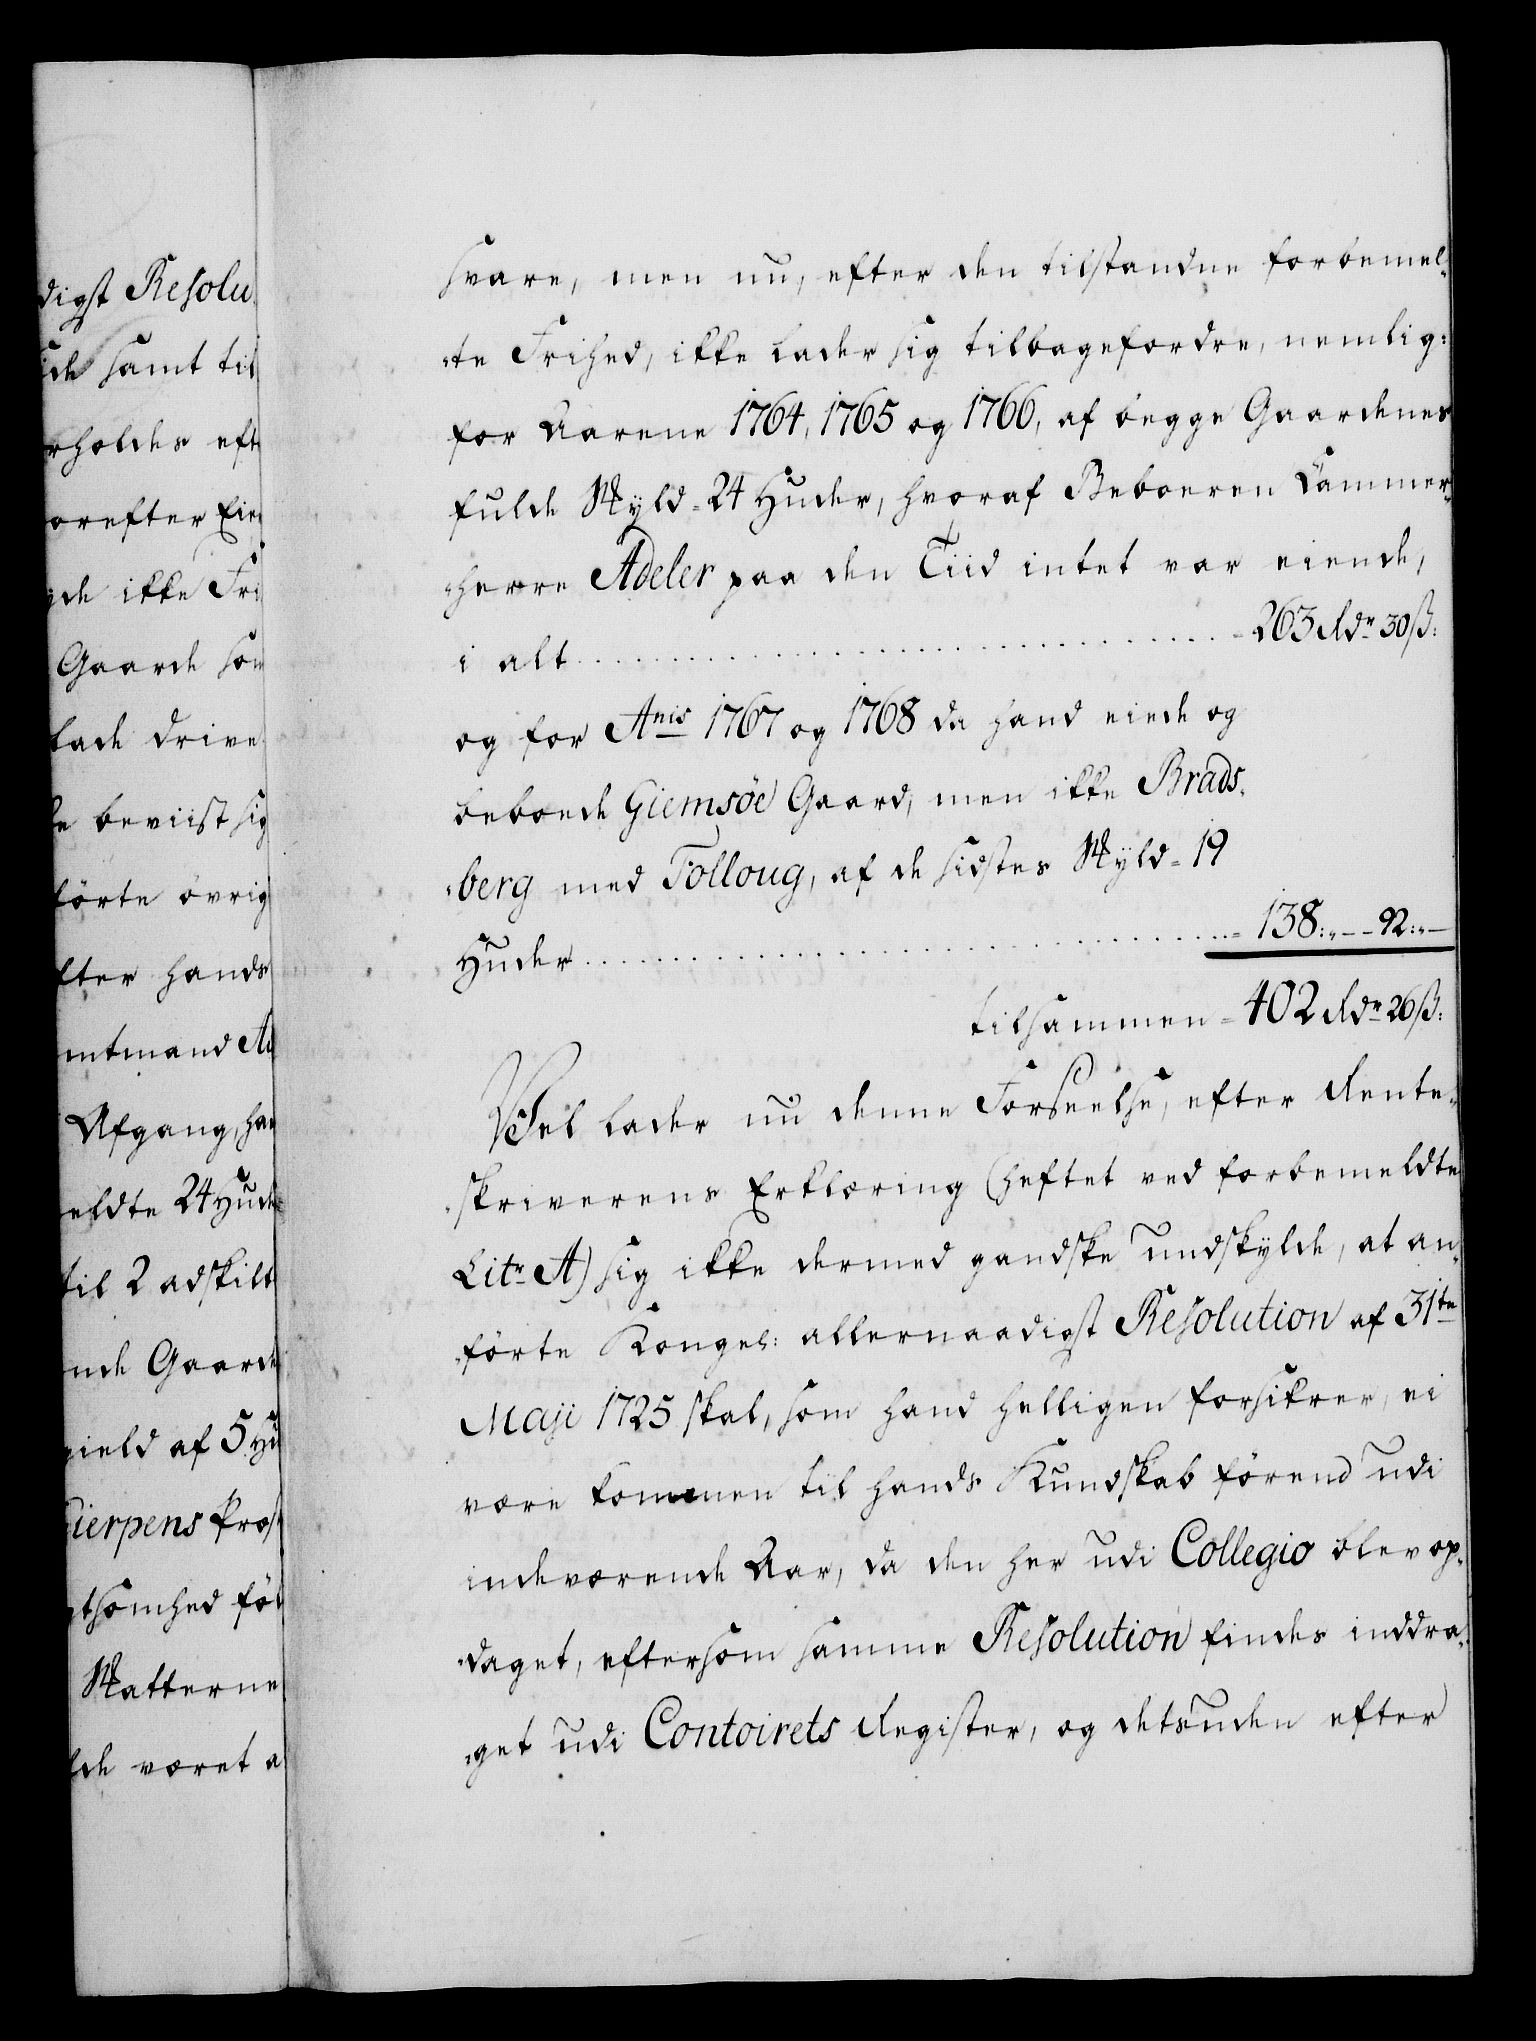 digst Resolu
ide samt til
rholdes eft
orefter Ein
gde ikke Fri
Gaarde som
lade drive
le beviist sig
förte övrig
fter hands
mtmand Ad
Afgang, han
eldte 24 Hude
til 2 adskilt
nde Gaarde
gield af 5 Hu
Gierpens Præst
gtsomhed föl
Matterne
lde været a
svare, men nu, efter den tilstandne forbemel-
-te Frihed, ikke lader sig tilbagefordre, nemlig:
for Aarene 1764, 1765 og 1766, af begge Gaardenes
fulde Skyld - 24 Huder, hvoraf Beboeren Cammer-
-herre Adeler paa den Tiid intet var eiende,
i alt . . . . . . . . . . - 263 Rdr 30 ß:
og for Anis 1767 og 1768 da hand eiede og
beboede Giemsöe Gaard, men ikke Brads-
-berg med Folloug, af de sidstes Skyld - 19
Huder . . . . . . . . . . - 138:„ - - 92:„ -
tilsammen - 402 Rdr 26 ß:
Vel lader nu denne Forseelse, efter Rente-
-skriverens Erklæring (heftet ved forbemeldte
Litr A) sig ikke dermed gandske undskylde, at an-
-förte Kongel: allernaadigst Resolution af 31te
Maji 1725 skal, som hand helligen forsikrer, ei
være kommen til hands Kundskab förend udi
indeværende Aar, da den her udi Collegio blev op-
-daget, eftersom samme Resolution findes inddra-
-get udi Contoirets Register, og detsuden efter